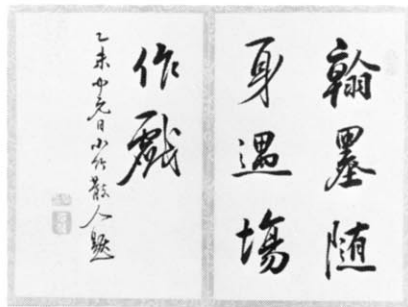 翰墨随
身遇場
作戲
乙未中元日小竹散人題